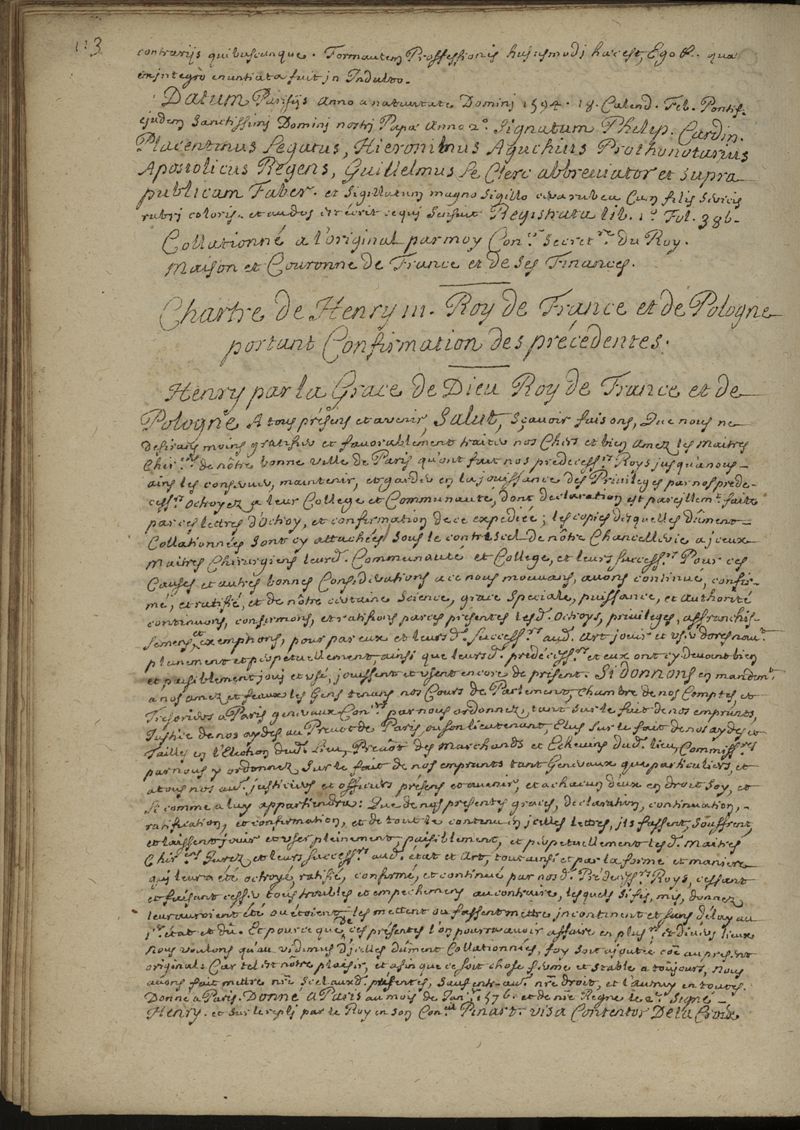 113
contrarijs quibuscunque. Forma autem Proffessionis hujusmodj hæc est, Ego &. qua
in integro enuntiata fuit jn Jndulto.
Datum Parisijs anno a nativitate Dominj 1594. 18. Calend. Feb. Pontif.
ejudem Sanctissimj Dominj nostrj Papæ anno 2º. Signatum Philip. Cardin.
Placentinus Legatus, Hieronimus Aguchius Prothonotarius
Apostolicus Regens, Guillelmus Le Clerc abbreviator et supra
publicam Faber. et Sigillatum magno Sigillo cera rubea Cum filis Sericis
rubrj coloris. et au dos est écrit ce quj Suit Registrata lib. 1º. Fol. 386.
Collationné a l'original par moy Con.er Secret.re du Roy.
Maison et Couronne de France et de Ses Finances.
Chartre de Henry III. Roy de France et de Pologne
portant Confirmation des précédentes.
Henry par la Grace de Dieu Roy de France et de
Pologne A tous présens et avenir, Salut, Sçavoir faisons, Que nous ne
desirans moins gratifier et favorablement traiter nos Chers et bien Amez les Maitres
Chir.ens de nôtre bonne ville de Paris qu'ont fait nos prédecess.rs Roys jusqu'a nous
ains les conserver, maintenir, et garder en la joüissance des Privileges par nos préde-
cess.rs octroyez a leur College et Communauté, dont declaration est pareillem.t faite
par ces lettres d'octroy, et confirmation de ce expediée; les copies desquelles düment
Collationnées Sont cy attachées Sous le contrescel de nôtre Chancellerie a jceux
Maitres Chirurgiens leurd. Communauté et College, et leurs Success.rs Pour ces
Causes et autres bonnes Considerations a ce nous mouvans, avons continué, confir-
mé, et ratifié, et de nôtre certaine Science, grace Speciale, puissance, et Authorité
continuons, confirmons, et ratifions par ces présentes lesd. Octroys, privileges, affranchis-
semens, et exemptions, pour par eux et leursd. Success.rs aud. Art joüir et user doresnav.t
plainement et perpetuellement, ainsi que leursd. prédecess.rs et eux ont cy devant bien
et paisiblement joüj et usé, joüissent et usent encore de présent. Si donnons en mandem.t
a nos amez et feaux les Gens tenans nos Cours de Parlement, Chambre de nos Comptes et
Tresoriers a Paris generaux Con.ers par nous ordonnez, tant Sur le fait de nos emprunts,
Justice de nos aydes au Prevot de Paris ou Son lieutenant, Elus Sur le fait de nos aydes et
Tailles en l'Election dud. lieu, Prevot des Marchands et Echevins dud. lieu, Commiss.res
par nous y ordonnez Sur le fait de nos emprunts tant Generaux que particuliers, et
a tous nos au.s justiciers et officiers présens et avenir, et a chacun d'eux en droit Soy, et
Si comme a luy appartiendra: Que de nos présentes graces, declaration, continuation,
ratification, et confirmation, et de tout le contenu en jcelles lettres, jls fassent, Souffrent
et laissent joüir et user pleinement, paisiblement, et perpetuellement lesd. Maitres
Chir.ens Jurez et leurs Success.rs aud. état et Art, tout ainsi et par la forme et maniere
qu'il leur a été octroyé, ratifié, confirmé, et continué par nosd. Prédecess.rs Roys, cessant
et faisant cesser tous troubles et empechemens au contraire, lesquels Si fis, mis, donnez
leur avoient été ou étoient, les mettent ou fassent mettre jncontinent et Sans délay au
pr. etat et dû. Et pource que de ces présentes l'on pourra avoir affaire en plus.rs et divers lieux
Nous voulons qu'au vidimus d'jcelles düment Collationnées, foy Soit ajoutée cõe au présent
original: Car tel est nôtre plaisir, et afin que ce Soit chose ferme et Stable a toujours, Nous
avons fait mettre nre Scel auxd. présentes, Sauf en au. nre droit, et l'autruy en toutes.
Donné a Paris. Donné a Paris au mois de Jan.er 1576. et de nre Regne le 2.e Signé
Henry. et Sur le repli par le Roy en Son Con.el Pinart. visa Contentor De la Croix.